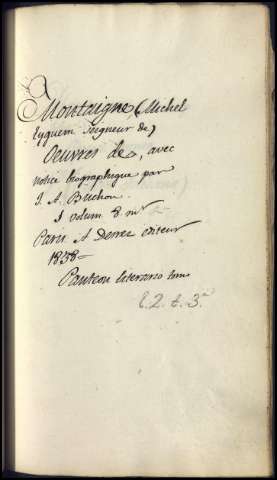 Montaigne (Michel
Eyquem seigneur de)
Oeuvres de, avec
notice biographique par
J. A. Buchon.
1 volum 8. mr
Paris A Derrez editeur
1838=
Panteon literario tom
E. 2. t. 3.a